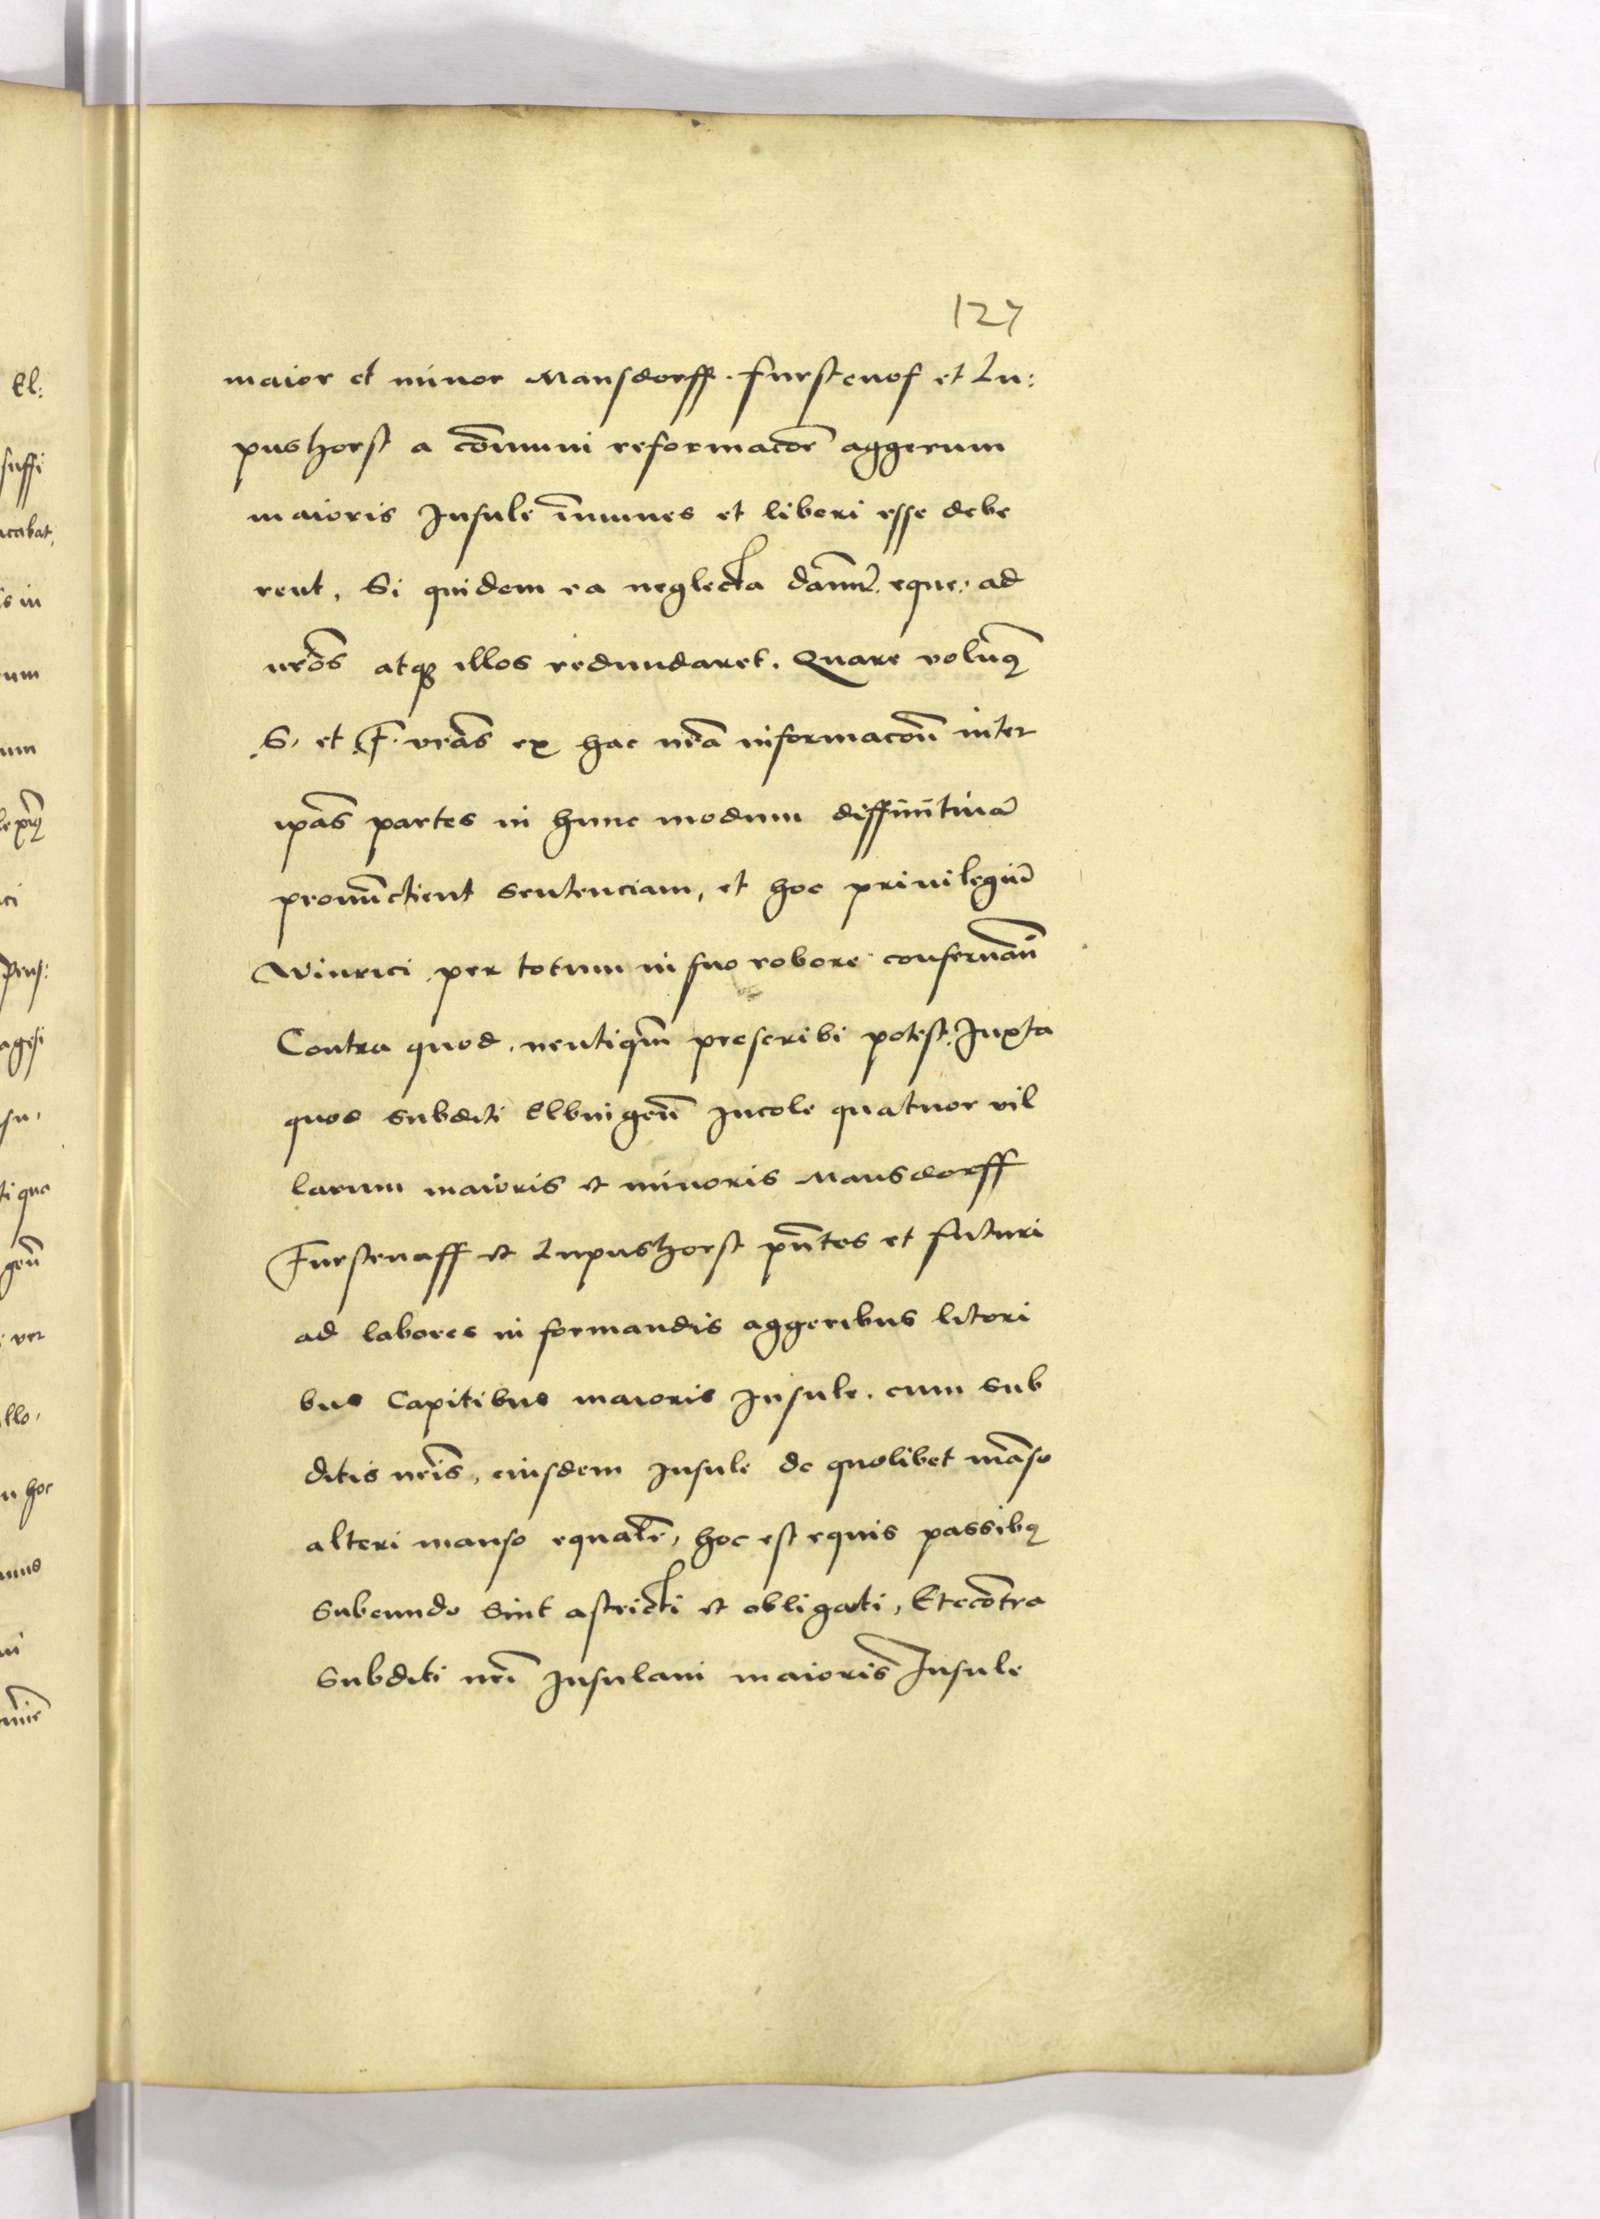 127
maior et minor Mansdorff. furstenof et Lu:
pushorst a co̅muni reformac̅oe̅ aggerum
maioris Insule i̅munes et liberi esse debe
rent, Si quidem ea neglecta da̅mu̅ eque ad
nr̅os atqꝫ illos redundaret. Quare volum⁹
S. et F. vr̅as ex hac nr̅a informaco̅n̅ inter
ip̅as partes in hunc modum diffinitiua̅
pronu̅ctient sentenciam, et hoc priuilegiu̅
Winrici per totum in suo robore conseruan̅
Contra quod neutiqm̅ prescribi potest. Iuxta
quod subditi Elbingen̅ Incole quatuor vil
larum maioris et minoris Mansdorff
Furstenaff et Lupushorst pn̅tes et futuri
ad labores in formandis aggeribus litori
bus Capitibus maioris Insule. cum sub
ditis nr̅is, eiusdem Insule de quolibet ma̅so
alteri manso equale̅, hoc est equis passibꝰ
Subeundo Sint astricti et obligati, Eteco̅tra
Subditi nr̅i Insulani maioris Insule
El:
suffi
acabat,
um
ci
agesi
su,
ti qua
gen̅
ver
llo,
hoc